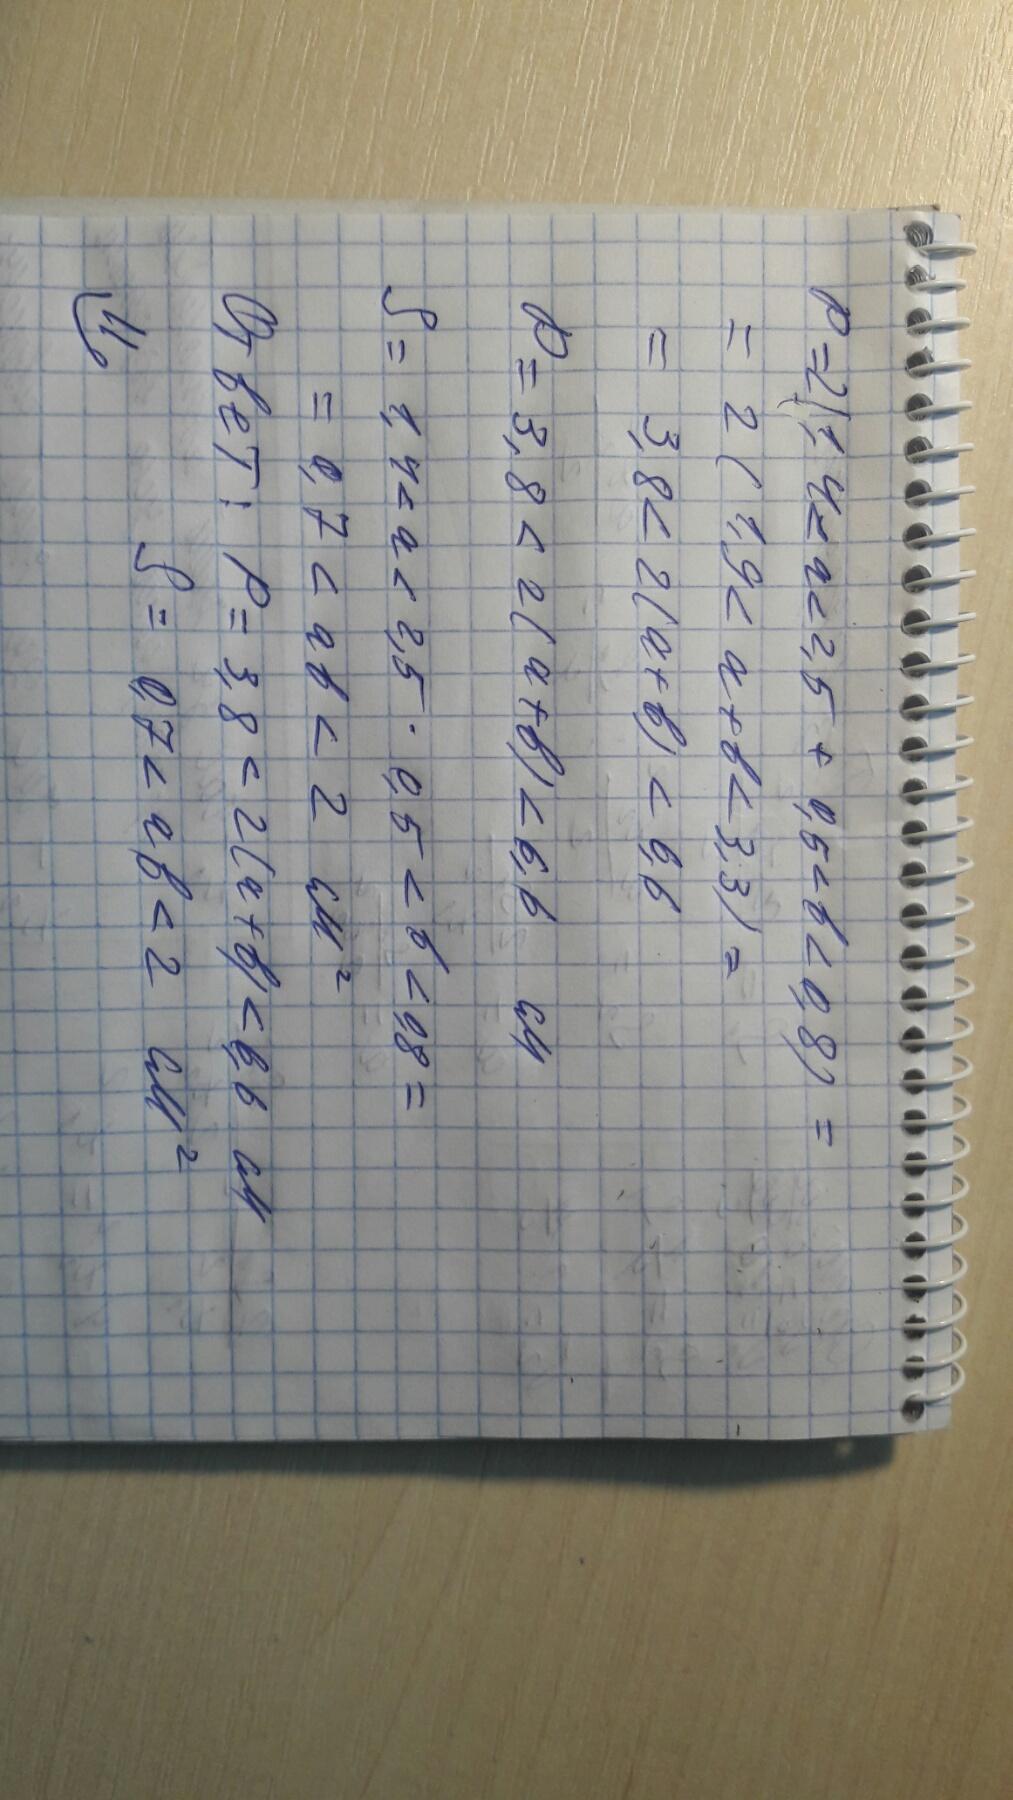 P=2(1,4<a<2,5 + 0,5<b<0,8) =
= 2(1,9<a+b<3,3) =
= 3,8<2(a+b)<6,6
P=3,8<2(a+b)<6,6 см
S=1,4<a<2,5 · 0,5<b<0,8 =
= 0,7<ab<2 см²
Ответ: P=3,8<2(a+b)<6,6 см
S= 0,7<ab<2 см²